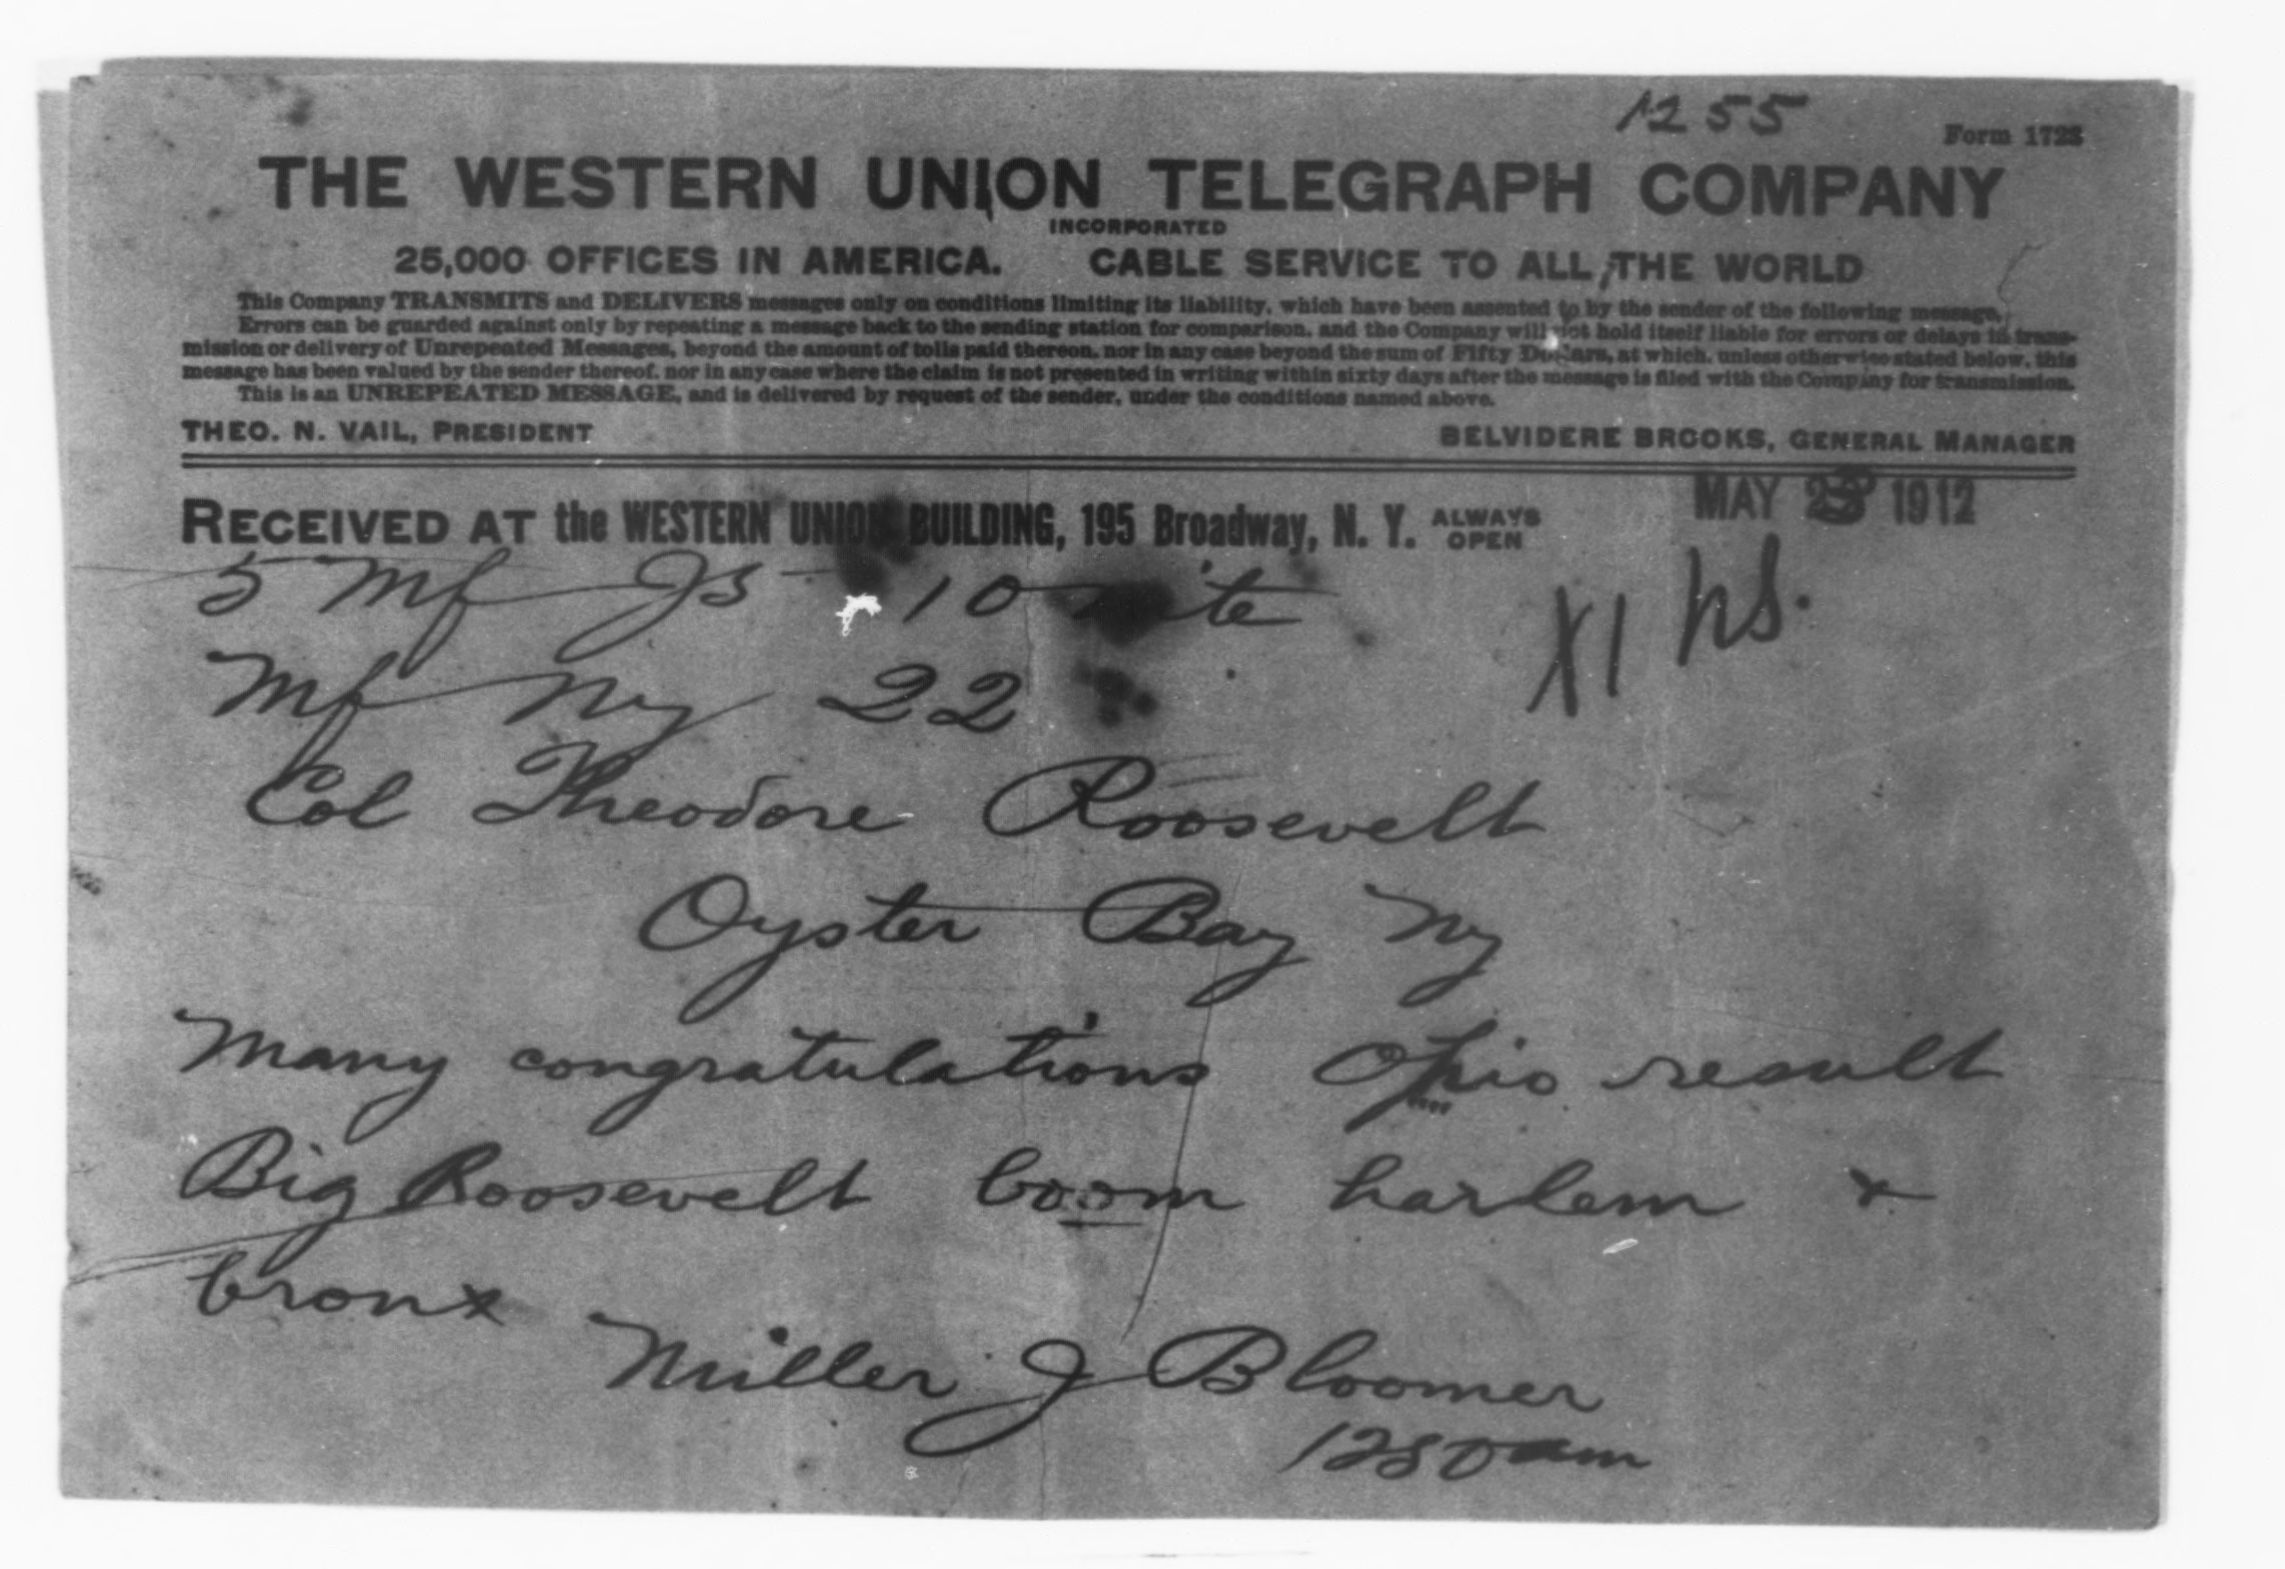 1255
Form 1728
THE WESTERN UNION TELEGRAPH COMPANY
INCORPORATED
25,000 OFFICES IN AMERICA. CABLE SERVICE TO ALL THE WORLD
This Company TRANSMITS and DELIVERS messages only on conditions limiting its liability, which have been assented to by the sender of the following message.
Errors can be guarded against only by repeating a message back to the sending station for comparison, and the Company will not hold itself liable for errors or delays in trans-
mission or delivery of Unrepeated Messages, beyond the amount of tolls paid thereon, nor in any case beyond the sum of Fifty Dollars, at which, unless otherwise stated below, this
message has been valued by the sender thereof, nor in any case where the claim is not presented in writing within sixty days after the message is filed with the Company for transmission.
This is an UNREPEATED MESSAGE, and is delivered by request of the sender, under the conditions named above.
THEO. N. VAIL, PRESIDENT BELVIDERE BROOKS, GENERAL MANAGER
RECEIVED AT the WESTERN UNION BUILDING, 195 Broadway, N. Y. ALWAYS OPEN
MAY 1912
5 Mf Js 10 nite
X1 hs.
Mf Ny 22
Col Theodore Roosevelt
Oyster Bay Ny
Many congratulations Ohio result
Big Roosevelt boom harlem &
bronx
Miller J Bloomer
1230am